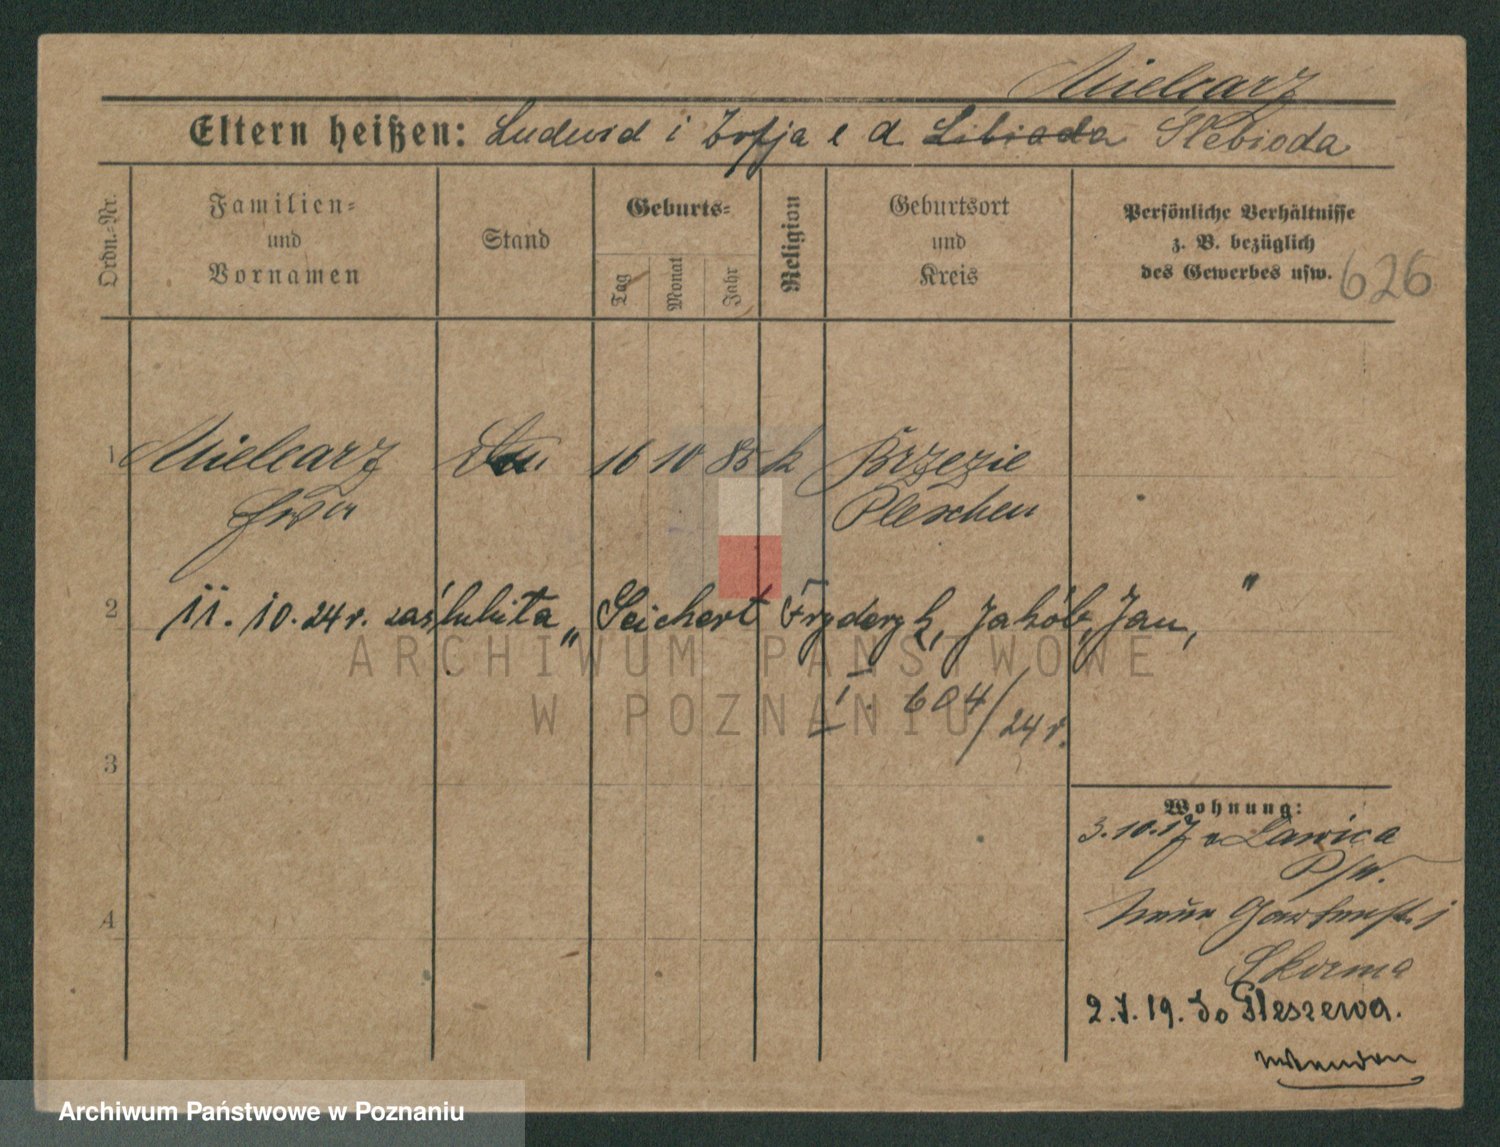 Mielcarz
Eltern heißen: Ludwid i Zofja e d Libiada Slebioda
Ordn.-Nr.
Familien-
und
Vornamen
Stand
Geburts-
Tag
Monat
Jahr
Religion
Geburtsort
und
Kreis
Persönliche Verhältnisse
z. B. bezüglich
des Gewerbes usw.
626
1 Mielcarz 16 10 85 k Brzezie
Ewa Pleschen
2 11. 10. 24 r. zaślubiła „Seichert Fryderyk, Jakób, Jan, "
I. 604/24 r.
3
4
Wohnung:
3.10.17 v Lawica
P/W.
Neue Gartenstr. 1
Skorma
2.7.19. Do Pleszewa.
ARCHIWUM PAŃSTWOWE
W POZNANIU
Archiwum Państwowe w Poznaniu